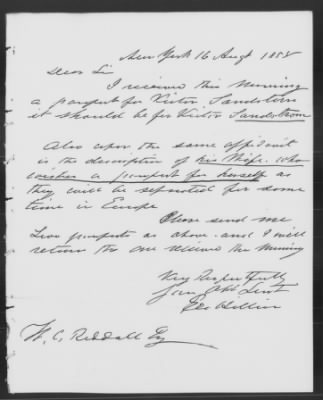 New York 16 Augt 1858
Dear Sir
I received this Morning
a passport for Victor Sandstern
it should be for Victor Sandstrom
Also upon the same affidavit
is the description of his Wife. who
wishes a passport for herself as
they will be separated for some
time in Europe
Please send me
two passports as above. and I will
return the one received this Morning
Very Respectfully
Your Obt Servt
Geo
W. C. Reddall Esq